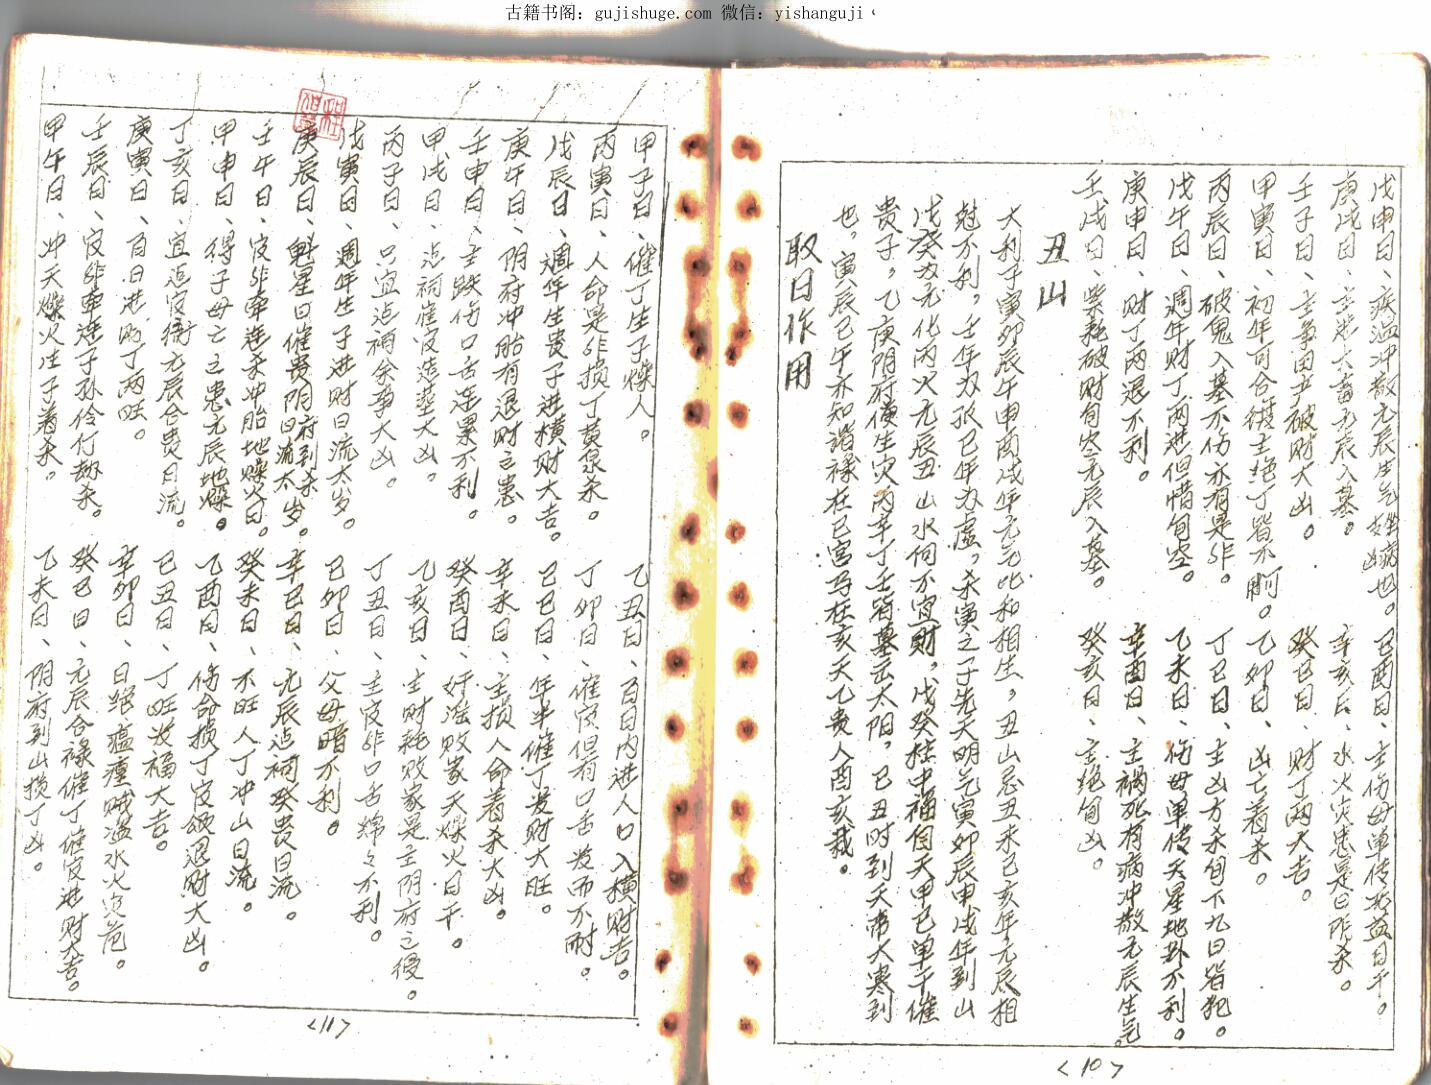 古籍书阁：gujishuge.com 微信：yishanguji
戊申日、疾温冲散元辰生气 也。
己酉日、主伤母单传 益日干。
庚戌日、主 六畜元辰入墓。
辛亥日、水火灾患是日 杀。
壬子日、主争田产破财大凶。
癸巳日、财丁两大吉。
甲寅日、初年可合 主绝丁皆不 。
乙卯日、凶亡着杀。
丙辰日、破鬼入墓不伤亦有是非。
丁巳日、主凶方杀旬下九日皆犯。
戊午日、週年财丁两进但惜旬空。
乙未日、伤母单传天星地卦不利。
庚申日、财丁两退不利。
辛酉日、主祸死有病冲散元辰生气。
壬戌日、紫耗破财旬空元辰入墓。
癸亥日、主绝旬凶。
丑山
大利子寅卯辰午申酉戌年元气比和相生，丑山忌丑未己亥年元辰相
尅不利，壬午为孤己年为虚，杀寅之子先天明气寅卯辰申戌年到山
戊癸为元化丙火元辰丑山水何不宜财，戊癸 中福自天甲己单干催
贵子，乙庚阴府便生灾丙辛丁壬皆墓云太阳，己丑时到天帝大寒到
也，寅辰巳午亦知诸禄在巳宫马在亥天乙贵人酉亥栽。
取日作用
<10>
甲子日、催丁生子燥人。
乙丑日、百日内进人口入横财吉。
丙寅日、人命是非损丁黄泉杀。
丁卯日、催官但有口舌发而不耐。
戊辰日、週年生贵子进横财大吉。
己巳日、年半催丁发财大旺。
庚午日、阴府冲胎有退财之患。
辛未日、主损人命着杀大凶。
壬申日、主跌伤口舌连累不利。
癸酉日、奸淫败家天燥火日干。
甲戌日、占祠催官造葬大凶。
乙亥日、主财耗败家是主阴府之侵。
丙子日、只宜占祠余事大凶。
丁丑日、主官非口舌绵々不利。
戊寅日、週年生子进财日流太岁。
己卯日、父母暗不利。
庚辰日、魁星日催贵阴府到杀日流太岁。
辛巳日、元辰占祠癸贵日流。
壬午日、官非牵连杀冲胎地燥火日。
癸未日、不旺人丁冲山日流。
甲申日、得子母亡之患元辰地燥。
乙酉日、伤命损丁官 退财大凶。
丁亥日、宜占官衙元辰合贵日流。
己丑日、丁旺发福大吉。
庚寅日、百日进 丁两旺。
辛卯日、日绝瘟 贼盗水火灾危。
壬辰日、官非牵连子孙伶仃劫杀。
癸巳日、元辰合禄催丁催官进财大吉。
甲午日、冲天燥火注子着杀。
乙未日、阴府到山损丁凶。
<11>